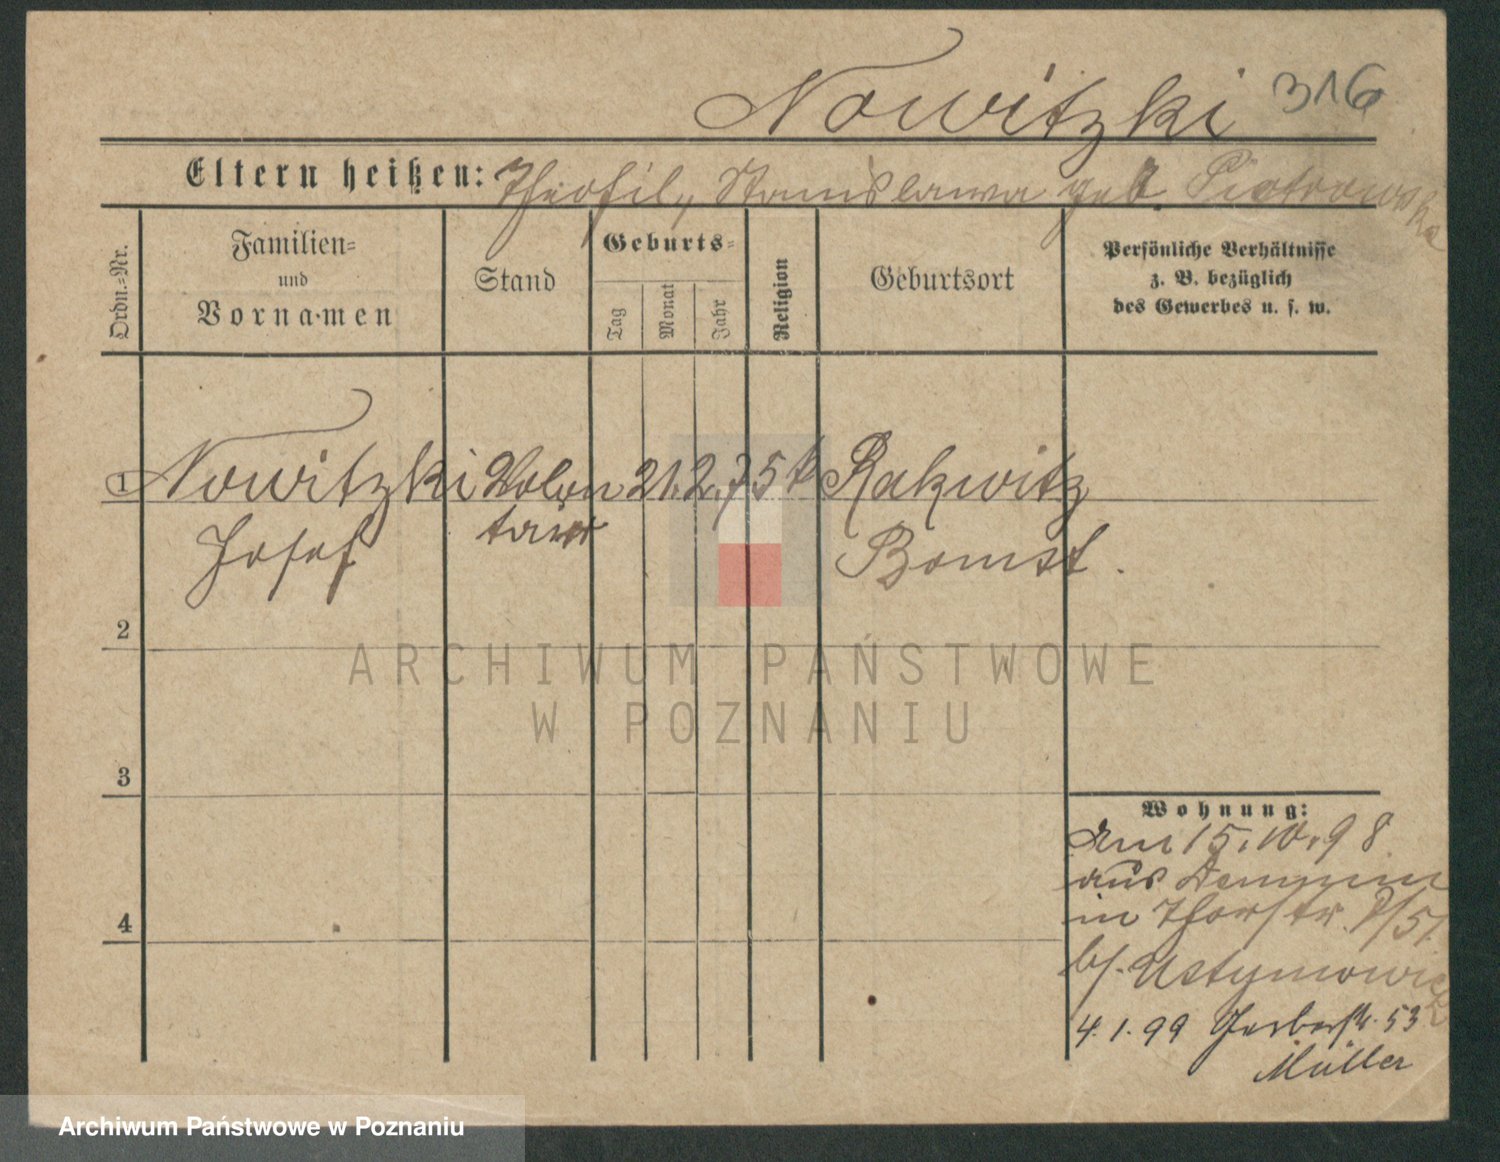 Nowitzki 316
Eltern heißen: Theofil, Stanislawa geb. Piotrowska
Ordn.-Nr.
Familien-
und
Vornamen
Stand
Geburts-
Tag
Monat
Jahr
Religion
Geburtsort
Persönliche Verhältnisse
z. B. bezüglich
des Gewerbes u. s. w.
1 Nowitzki Volon 21. 2. 75 k Rakwitz
Josef tair Bomst.
2
ARCHIWUM PAŃSTWOWE
W POZNANIU
3
Wohnung:
Am 15. 10. 98
aus
in Thorstr. 5/
b/. Ustymowicz
4. 1. 99 Gerberstr. 53
Müller
4
Archiwum Państwowe w Poznaniu